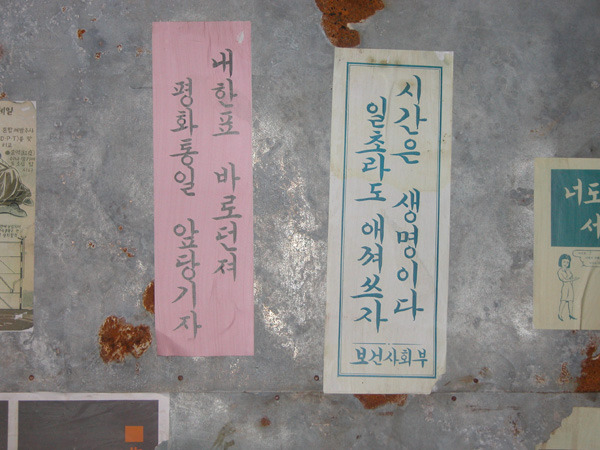 내한표 바로던져
평화통일 앞당기자
시간은 생명이다
일초라도 애껴쓰자
보건사회부
너도
세